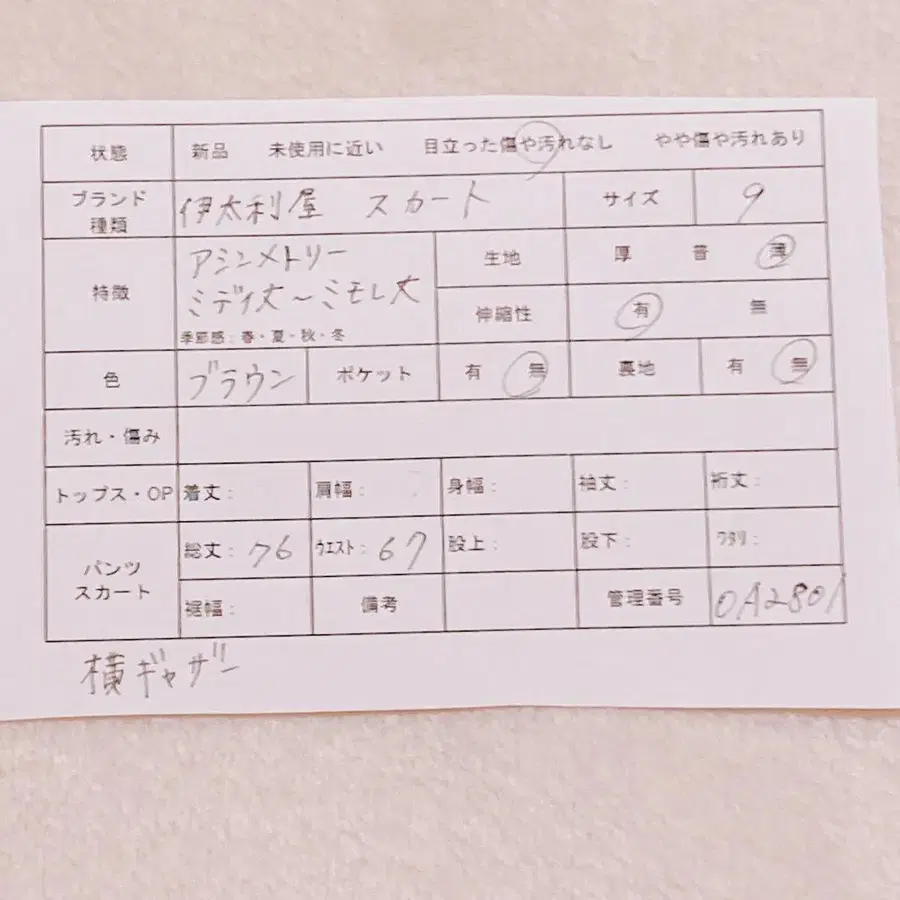 状態 新品 未使用に近い 目立った傷や汚れなし やや傷や汚れあり
ブランド 種類 伊太利屋 スカート サイズ 9
特徴 アシンメトリー
ミディ丈〜ミモレ丈
季節感:春・夏・秋・冬
生地 厚 普 薄
伸縮性 有 無
色 ブラウン ポケット 有 無 裏地 有 無
汚れ・傷み
トップス・OP 着丈: 肩幅: 身幅: 袖丈: 裄丈:
パンツ スカート 総丈:76 ウエスト:67 股上: 股下: ワタリ:
裾幅: 備考 管理番号 0A2801
横ギャザー